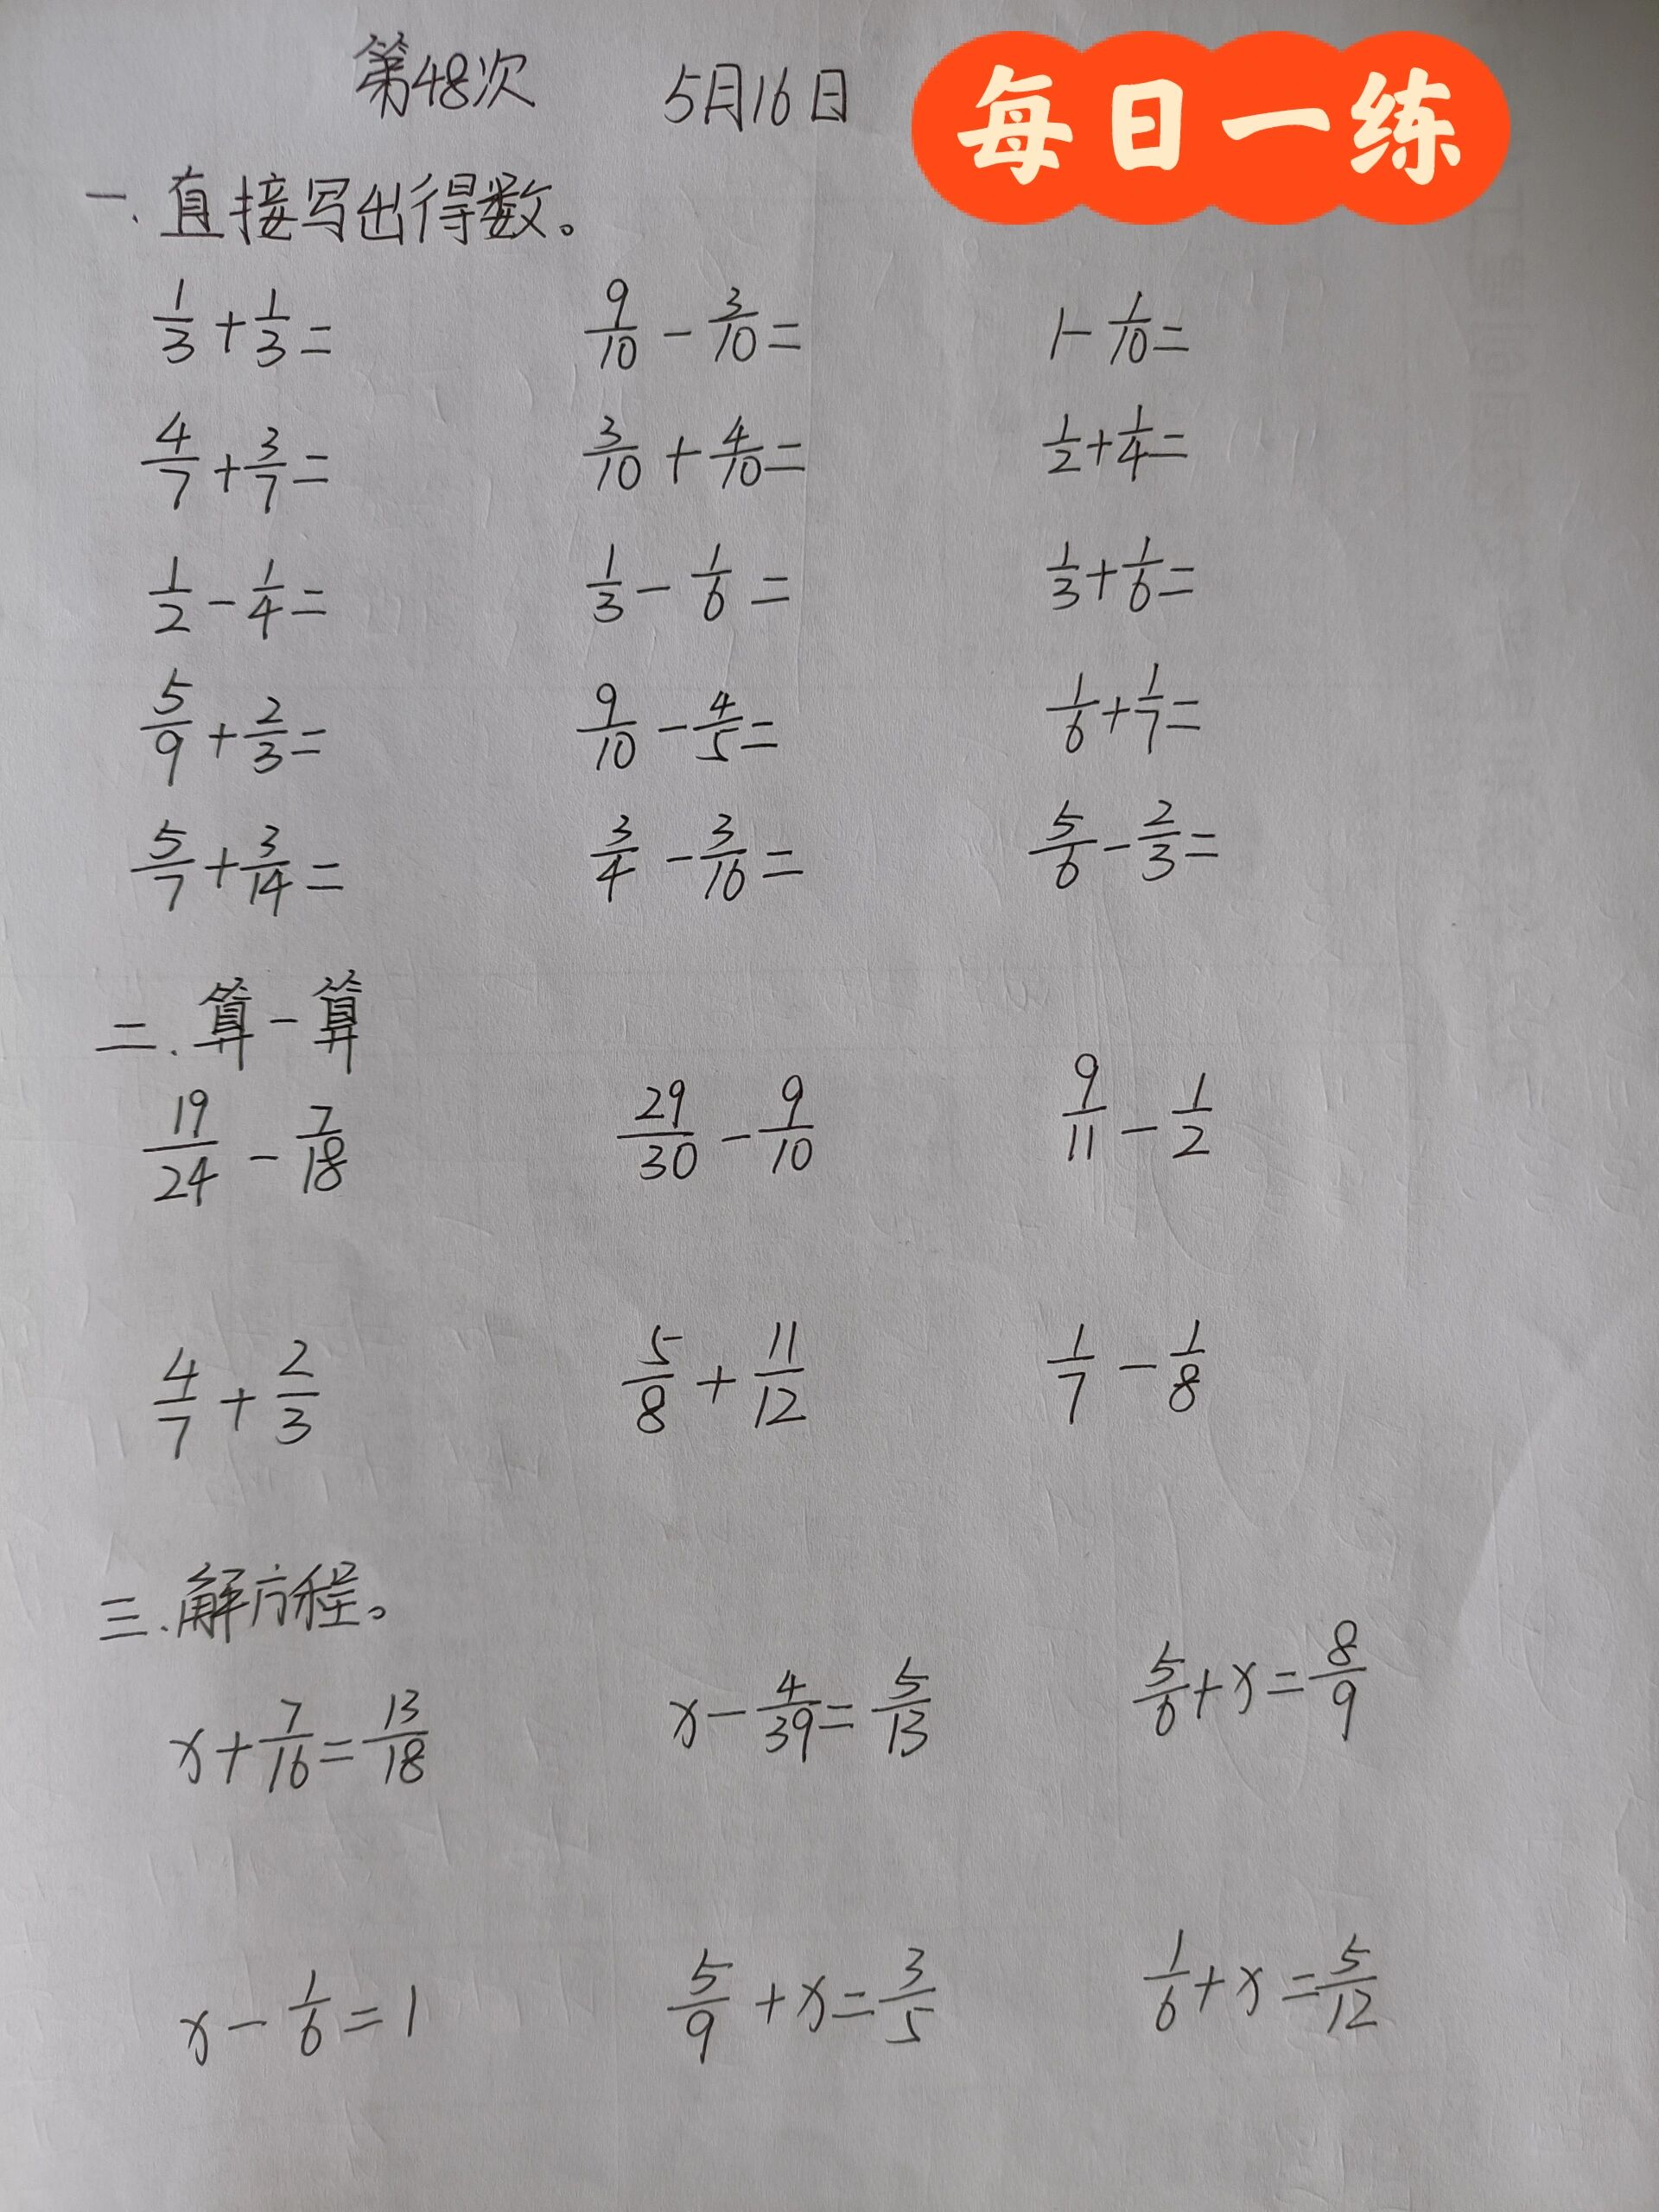 第48次 5月16日 每日一练
一、直接写出得数。
1/3+1/3= 9/10-3/10= 1-1/10=
4/7+3/7= 3/10+4/10= 1/2+1/4=
1/2-1/4= 1/3-1/6= 1/3+1/6=
5/9+2/3= 9/10-4/5= 1/6+1/7=
5/7+3/14= 3/4-3/16= 5/6-2/3=
二.算一算
19/24-7/18 29/30-9/10 9/11-1/2
4/7+2/3 5/8+11/12 1/7-1/8
三.解方程。
x+7/16=13/18 x-4/39=5/13 5/6+x=8/9
x-1/6=1 5/9+x=3/5 1/6+x=5/12